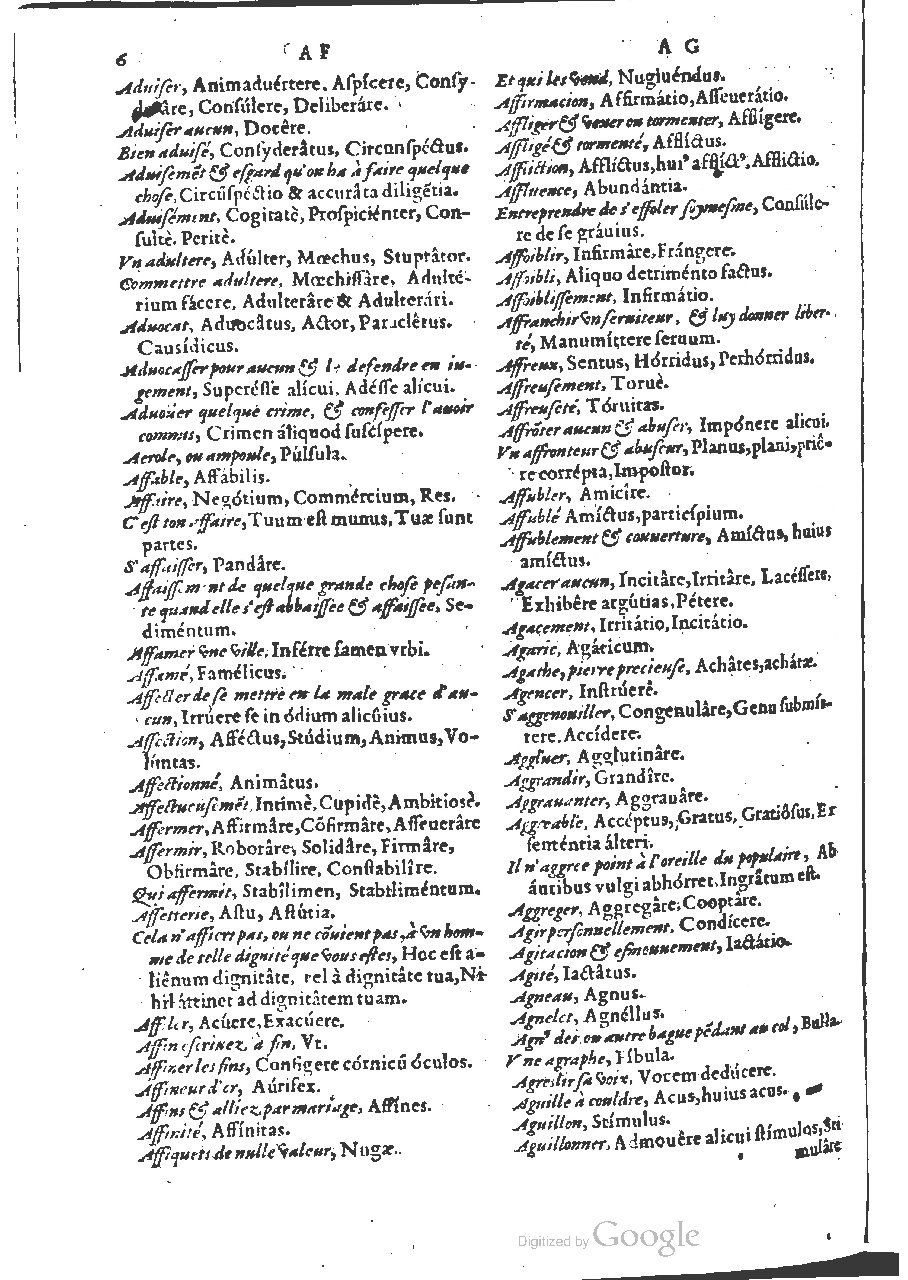 6 A F
Aduiser, Animaduértere. Aspícere, Consy-
Consúlere, Deliberáre.
Aduiser aucun, Docêre.
Bien aduisé, Consyderâtus, Circunspéctus.
Aduisemēt & esgard qu'on ha à faire quelque
chose, Circūspéctio & accuráta diligētia.
Aduisément, Cogitatè, Prospiciénter, Con-
sultè. Peritè.
Vn adultere, Adúlter, Mœchus, Stuprâtor.
Commettre adultere, Mœchissâre, Adulté-
rium fácere, Adulterâre & Adulterári.
Aduocat, Aduocâtus, Actor, Paraclêtus.
Causídicus.
Aduocasser pour aucun & le defendre en iu-
gement, Superésse alícui, Adésse alícui.
Aduoüer quelque crime, & confesser l'auoir
commis, Crimen áliquod suscípere.
Aerole, ou ampoule, Púsula.
Affable, Affábilis.
Affaire, Negótium, Commércium, Res.
C'est ton affaire, Tuum est munus, Tuæ sunt
partes.
S'affaisser, Pandâre.
Affaissement de quelque grande chose pesan-
te quand elle s'est abbaissee & affaissée, Se-
diméntum.
Affamer vne ville, Inférre famen vrbi.
Affamé, Famélicus.
Affecter de se mettre en la male grace d'au-
cun, Irrúere se in ódium alicúius.
Affection, Afféctus, Stúdium, Animus, Vo-
lúntas.
Affectionné, Animâtus.
Affectueusemēt, Intimè, Cupidè, Ambitiosè.
Affermer, Affirmâre, Cōfirmâre, Asseuerâre
Affermir, Roborâre, Solidâre, Firmâre,
Obfirmâre, Stabílire, Constabilîre.
Qui affermit, Stabîlimen, Stabiliméntum.
Affetterie, Astu, Astútia.
Cela n'affiert pas, ou ne cōuient pas, à vn hom-
me de telle dignité que vous estes, Hoc est a-
liênum dignitâte, rel à dignitâte tua, Ni
hil áttinet ad dignitâtem tuam.
Affiler, Acúere, Exacúere.
Affin escriuez, à fin, Vt.
Affiner les fins, Configere córnicū óculos.
Affineur d'or, Aúrifex.
Affins & alliez par mariage, Affínes.
Affinité, Affínitas.
Affiquets de nulle valeur, Nugæ.
A G
Et qui les vend, Nugiuéndus.
Affirmacion, Affirmátio, Asseuerátio.
Affliger & vexer ou tormenter, Afflígere.
Affligé & tormenté, Afflíctus.
Affliction, Afflictus, hui⁹ afflict⁹, Afflictio.
Affluence, Abundántia.
Entreprendre de s'affoler soymesme, Consúle-
re de se gráuius.
Affoiblir, Infirmâre, Frángere.
Affoibli, Aliquo detriménto factus.
Affoiblissement, Infirmátio.
Affranchir vn seruiteur, & luy donner liber-
té, Manumíttere seruum.
Affreux, Sentus, Hórridus, Perhórridus.
Affreusement, Toruè.
Affreuseté, Tóruitas.
Affrōter aucun & abuser, Impónere alicui.
Vn affronteur & abuseur, Planus, plani, priô-
re corrépta, Impostor.
Affubler, Amicîre.
Affublé Amíctus, particípium.
Affublement & couuerture, Amíctus, huius
amíctus.
Agacer aucun, Incitâre, Irritâre, Lacéssere,
Exhibêre argútias, Pétere.
Agacement, Irritátio, Incitátio.
Agaric, Agáricum.
Agathe, pierre precieuse, Achâtes, achátæ.
Agencer, Instrúere.
S'aggenouiller, Congenulâre, Genu submít-
tere, Accídere.
Aggluer, Agglutinâre.
Aggrandir, Grandîre.
Aggrauanter, Aggrauâre.
Aggreable, Accéptus, Gratus, Gratiôsus, Ex
senténtia álteri.
Il n'aggree point à l'oreille du populaire, Ab
áuribus vulgi abhórret, Ingrâtum est.
Aggreger, Aggregâre, Cooptâre.
Agir personnellement, Condícere.
Agitacion & esmouuement, Iactátio.
Agité, Iactâtus.
Agneau, Agnus.
Agnelet, Agnéllus.
Agn⁹ dei ou autre bague pēdant au col, Bulla.
Vne agraphe, Fíbula.
Agreslir sa voix, Vocem dedúcere.
Aguille à couldre, Acus, huius acus.
Aguillon, Stímulus.
Aguillonner, Admouêre alicui stímulos, Sti
mulâre
Digitized by Google